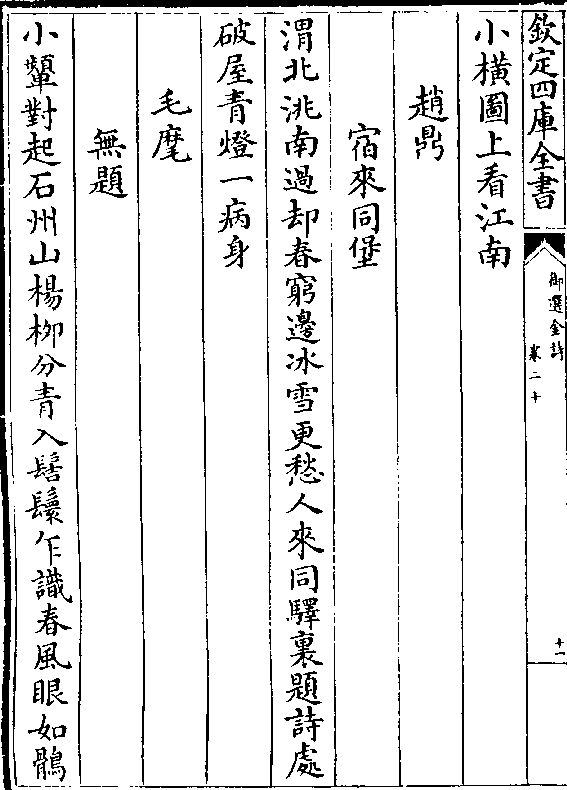 欽定四庫全書
御選金詩
卷二十
十一
小橫圖上看江南
趙鼎
宿來同堡
渭北洮南過却春窮邊冰雪更愁人來同驛裏題詩處
破屋青燈一病身
毛麾
無題
小顰對起石州山楊柳分青入髻鬟乍識春風眼如鶻